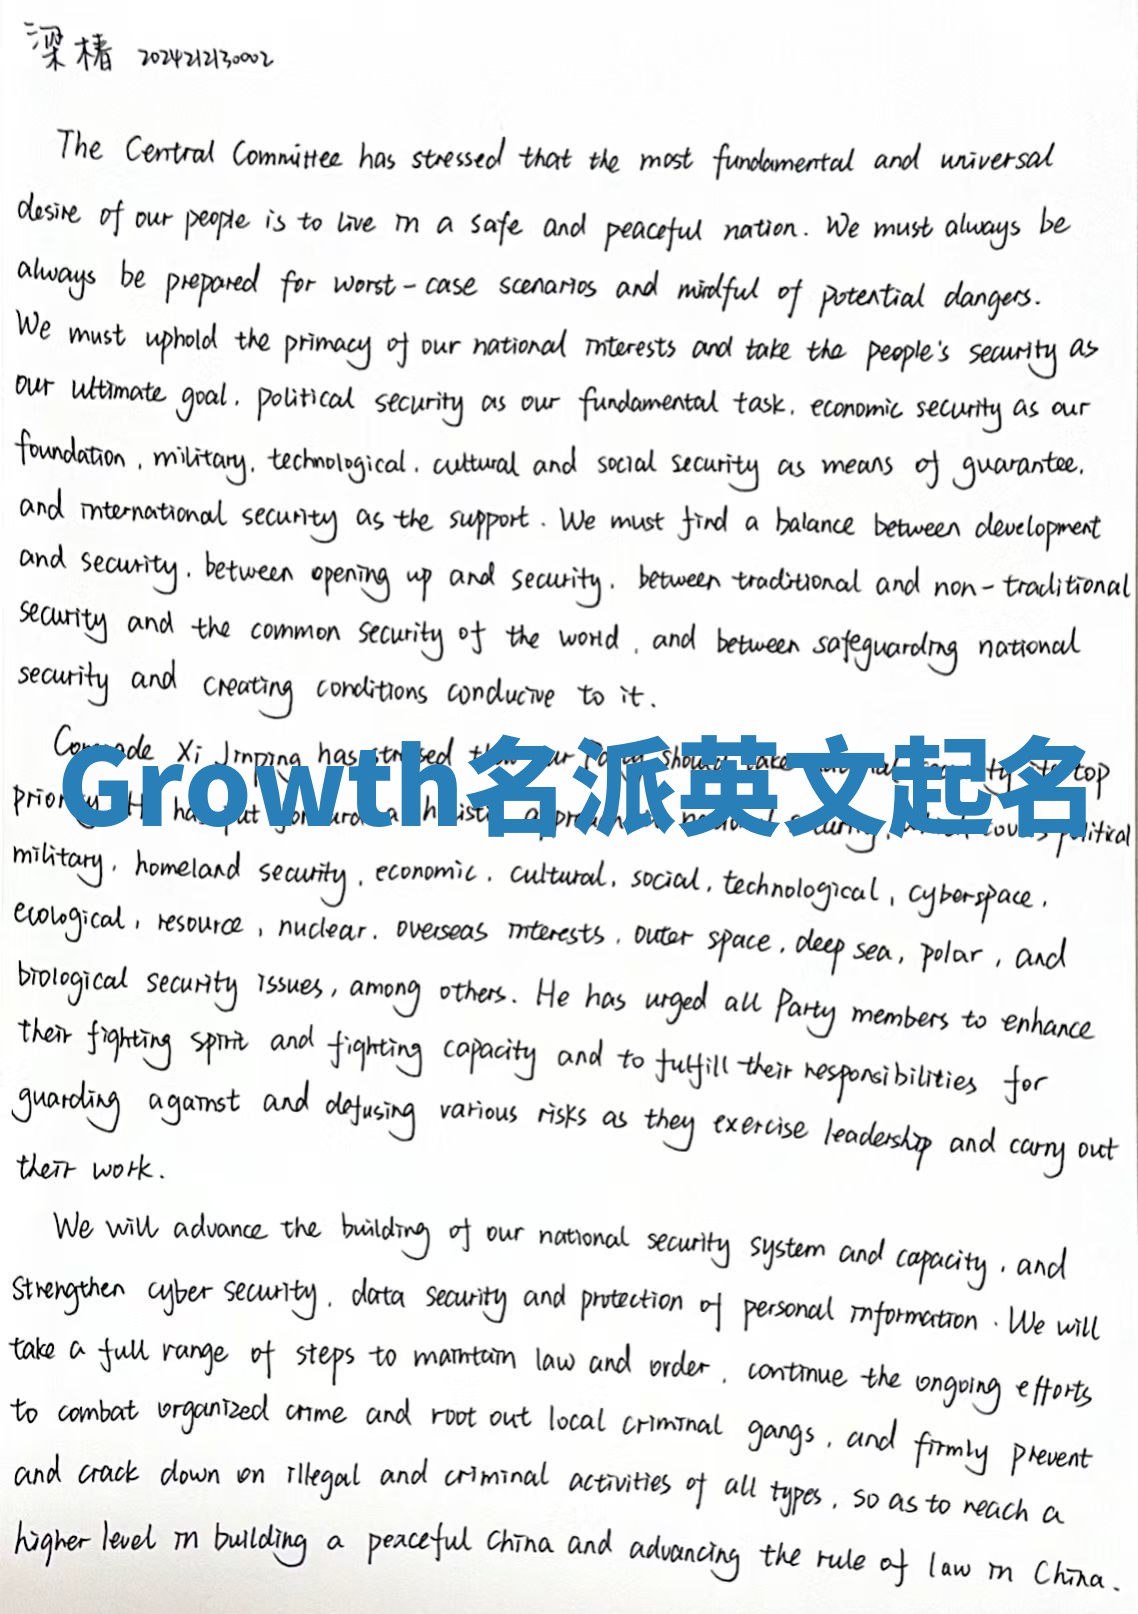 梁椿 2024212130002
The Central Committee has stressed that the most fundamental and universal
desire of our people is to live in a safe and peaceful nation. We must always be
always be prepared for worst-case scenarios and mindful of potential dangers.
We must uphold the primacy of our national interests and take the people's security as
our ultimate goal, political security as our fundamental task, economic security as our
foundation, military, technological, cultural and social security as means of guarantee,
and international security as the support. We must find a balance between development
and security, between opening up and security, between traditional and non-traditional
security and the common security of the world, and between safeguarding national
security and creating conditions conducive to it.
Comrade Xi Jinping has stressed that our Party should take national security its top
Growth名派英文起名
priority. He has put forward a holistic approach to national security, which covers political
military, homeland security, economic, cultural, social, technological, cyberspace,
ecological, resource, nuclear, overseas interests, outer space, deep sea, polar, and
biological security issues, among others. He has urged all Party members to enhance
their fighting spirit and fighting capacity and to fulfill their responsibilities for
guarding against and defusing various risks as they exercise leadership and carry out
their work.
We will advance the building of our national security system and capacity, and
strengthen cyber security, data security and protection of personal information. We will
take a full range of steps to maintain law and order, continue the ongoing efforts
to combat organized crime and root out local criminal gangs, and firmly prevent
and crack down on illegal and criminal activities of all types, so as to reach a
higher level in building a peaceful China and advancing the rule of law in China.